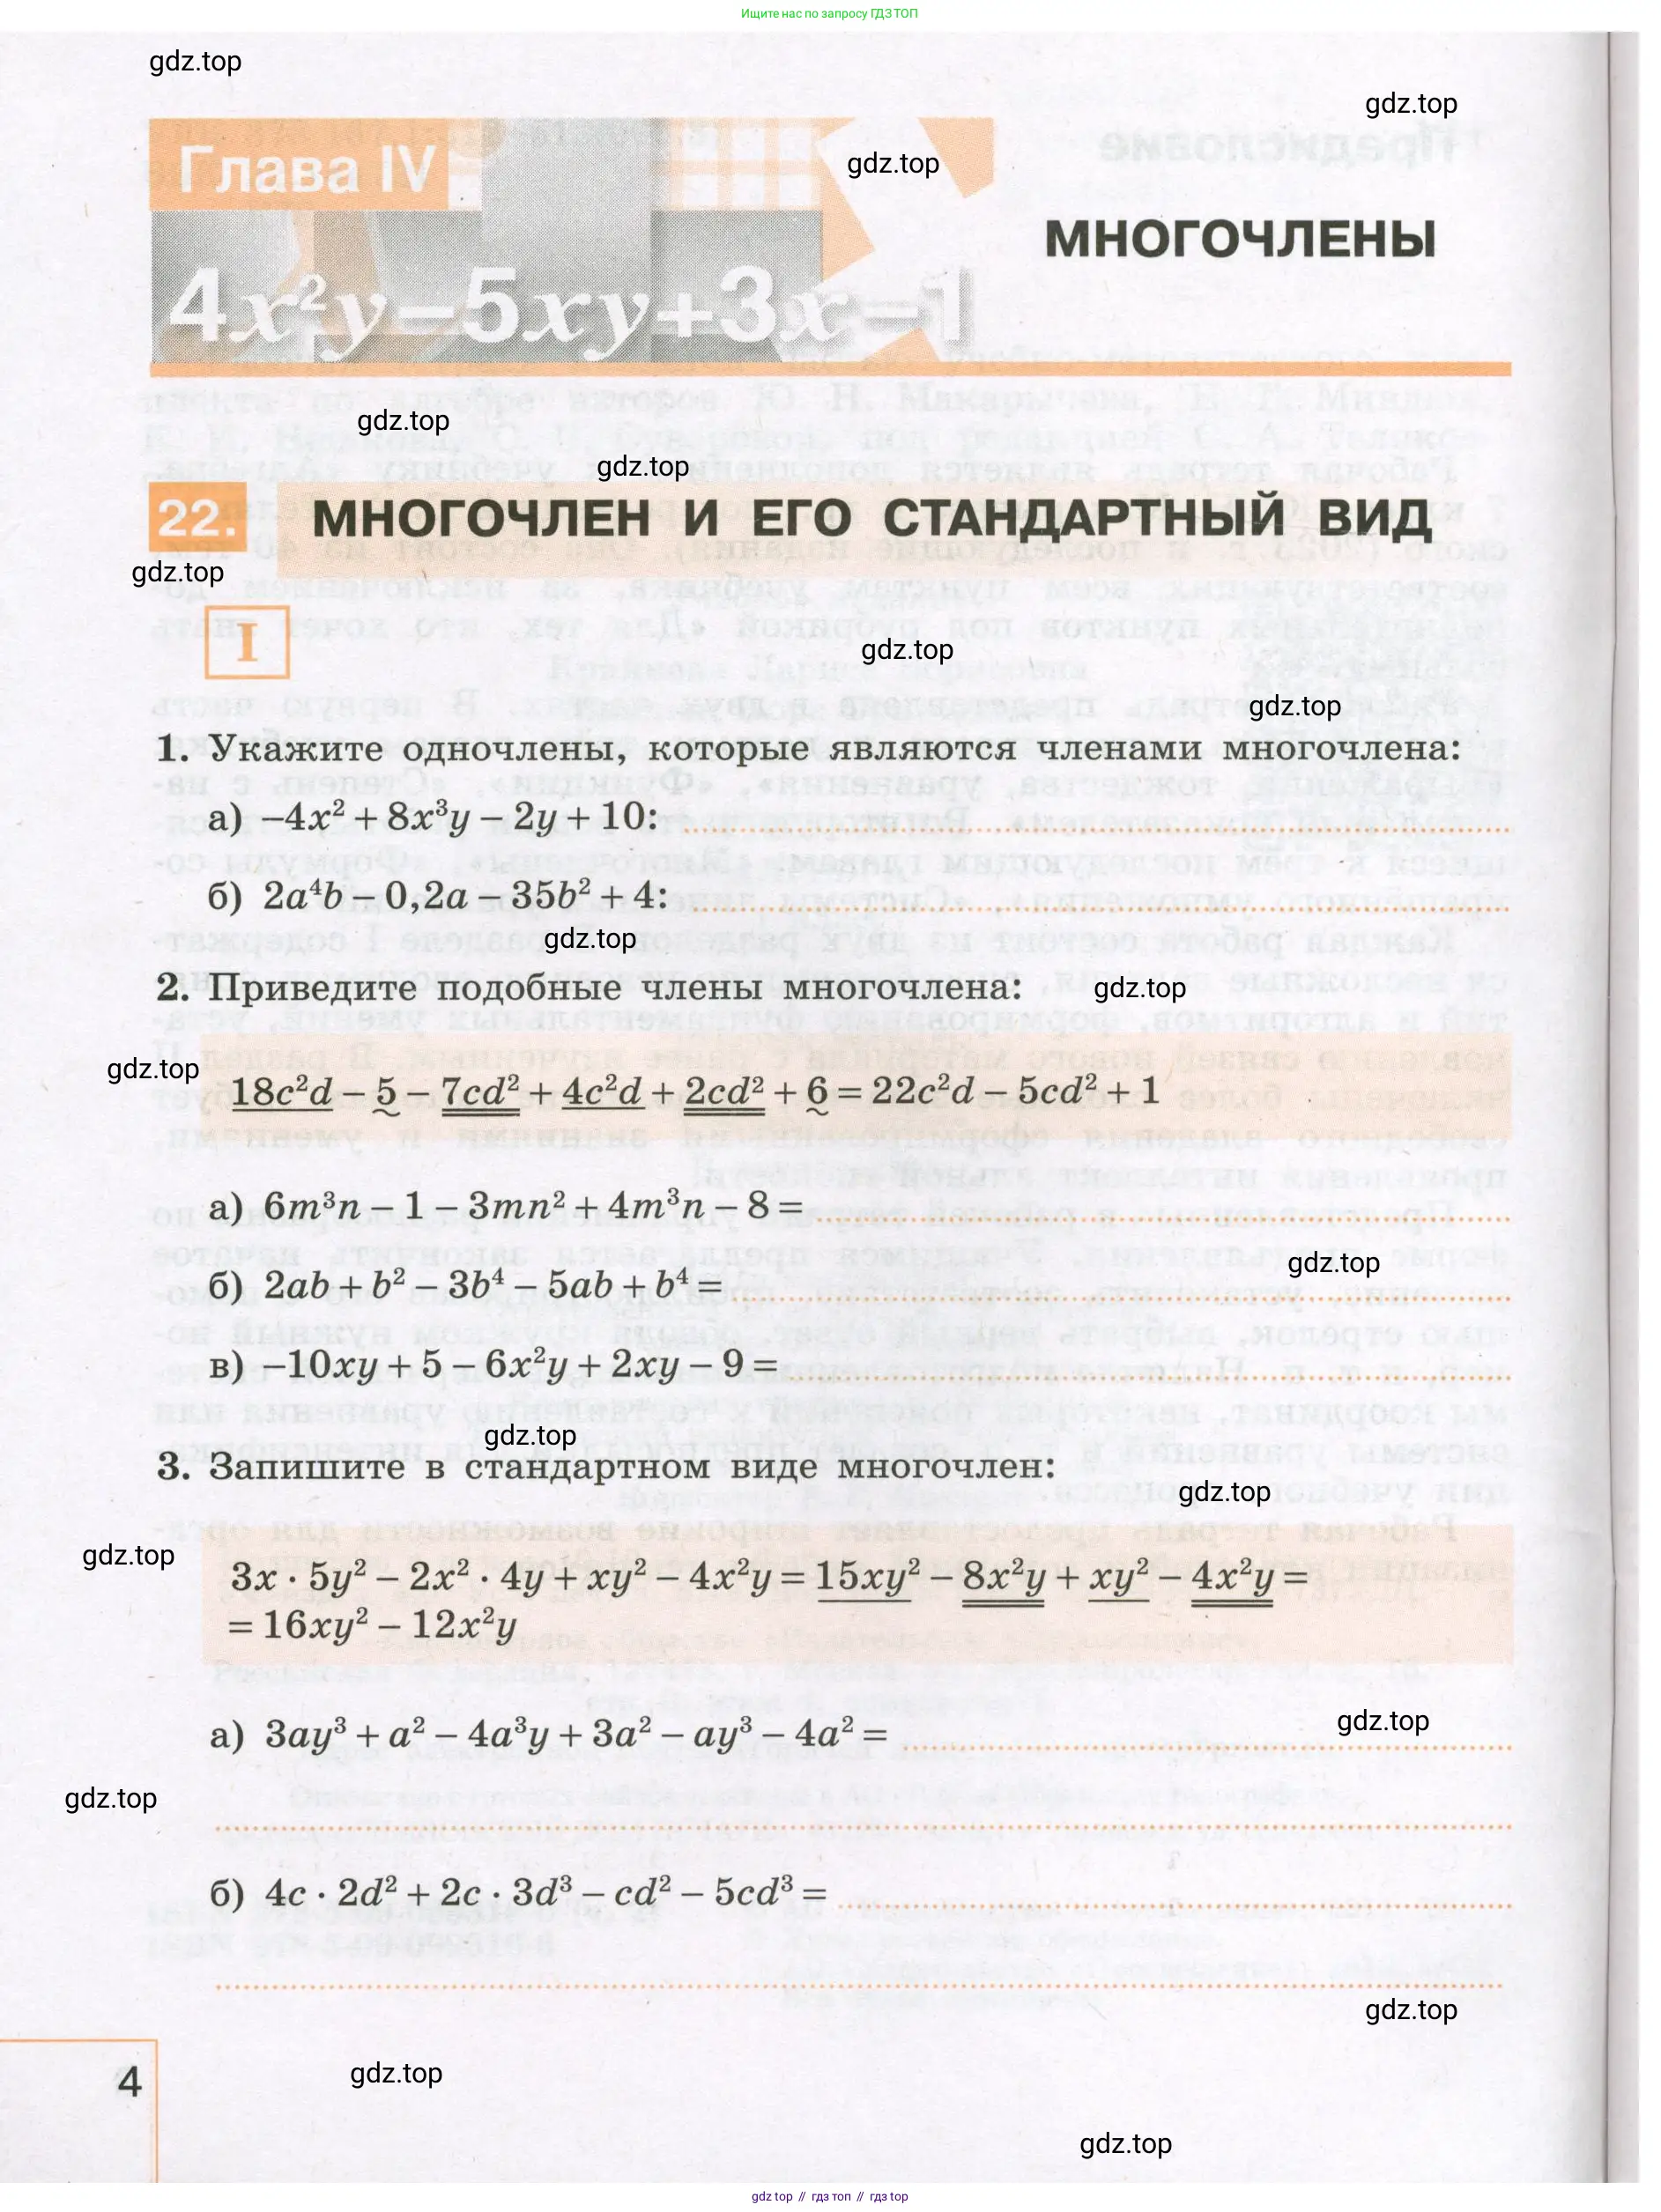 Ищите нас по запросу ГДЗ ТОП
gdz.top
gdz.top
Глава IV
gdz.top
МНОГОЧЛЕНЫ
4x²y−5xy+3x−1
gdz.top
gdz.top
22. МНОГОЧЛЕН И ЕГО СТАНДАРТНЫЙ ВИД
gdz.top
I
gdz.top
gdz.top
1. Укажите одночлены, которые являются членами многочлена:
а) −4x² + 8x³y − 2y + 10:
б) 2a⁴b − 0,2a − 35b² + 4:
gdz.top
2. Приведите подобные члены многочлена:
gdz.top
gdz.top
18c²d − 5 − 7cd² + 4c²d + 2cd² + 6 = 22c²d − 5cd² + 1
а) 6m³n − 1 − 3mn² + 4m³n − 8 =
gdz.top
б) 2ab + b² − 3b⁴ − 5ab + b⁴ =
в) −10xy + 5 − 6x²y + 2xy − 9 =
gdz.top
3. Запишите в стандартном виде многочлен:
gdz.top
gdz.top
3x · 5y² − 2x² · 4y + xy² − 4x²y = 15xy² − 8x²y + xy² − 4x²y =
= 16xy² − 12x²y
gdz.top
а) 3ay³ + a² − 4a³y + 3a² − ay³ − 4a² =
gdz.top
б) 4c · 2d² + 2c · 3d³ − cd² − 5cd³ =
gdz.top
4
gdz.top
gdz.top
gdz top // гдз топ // гдз top